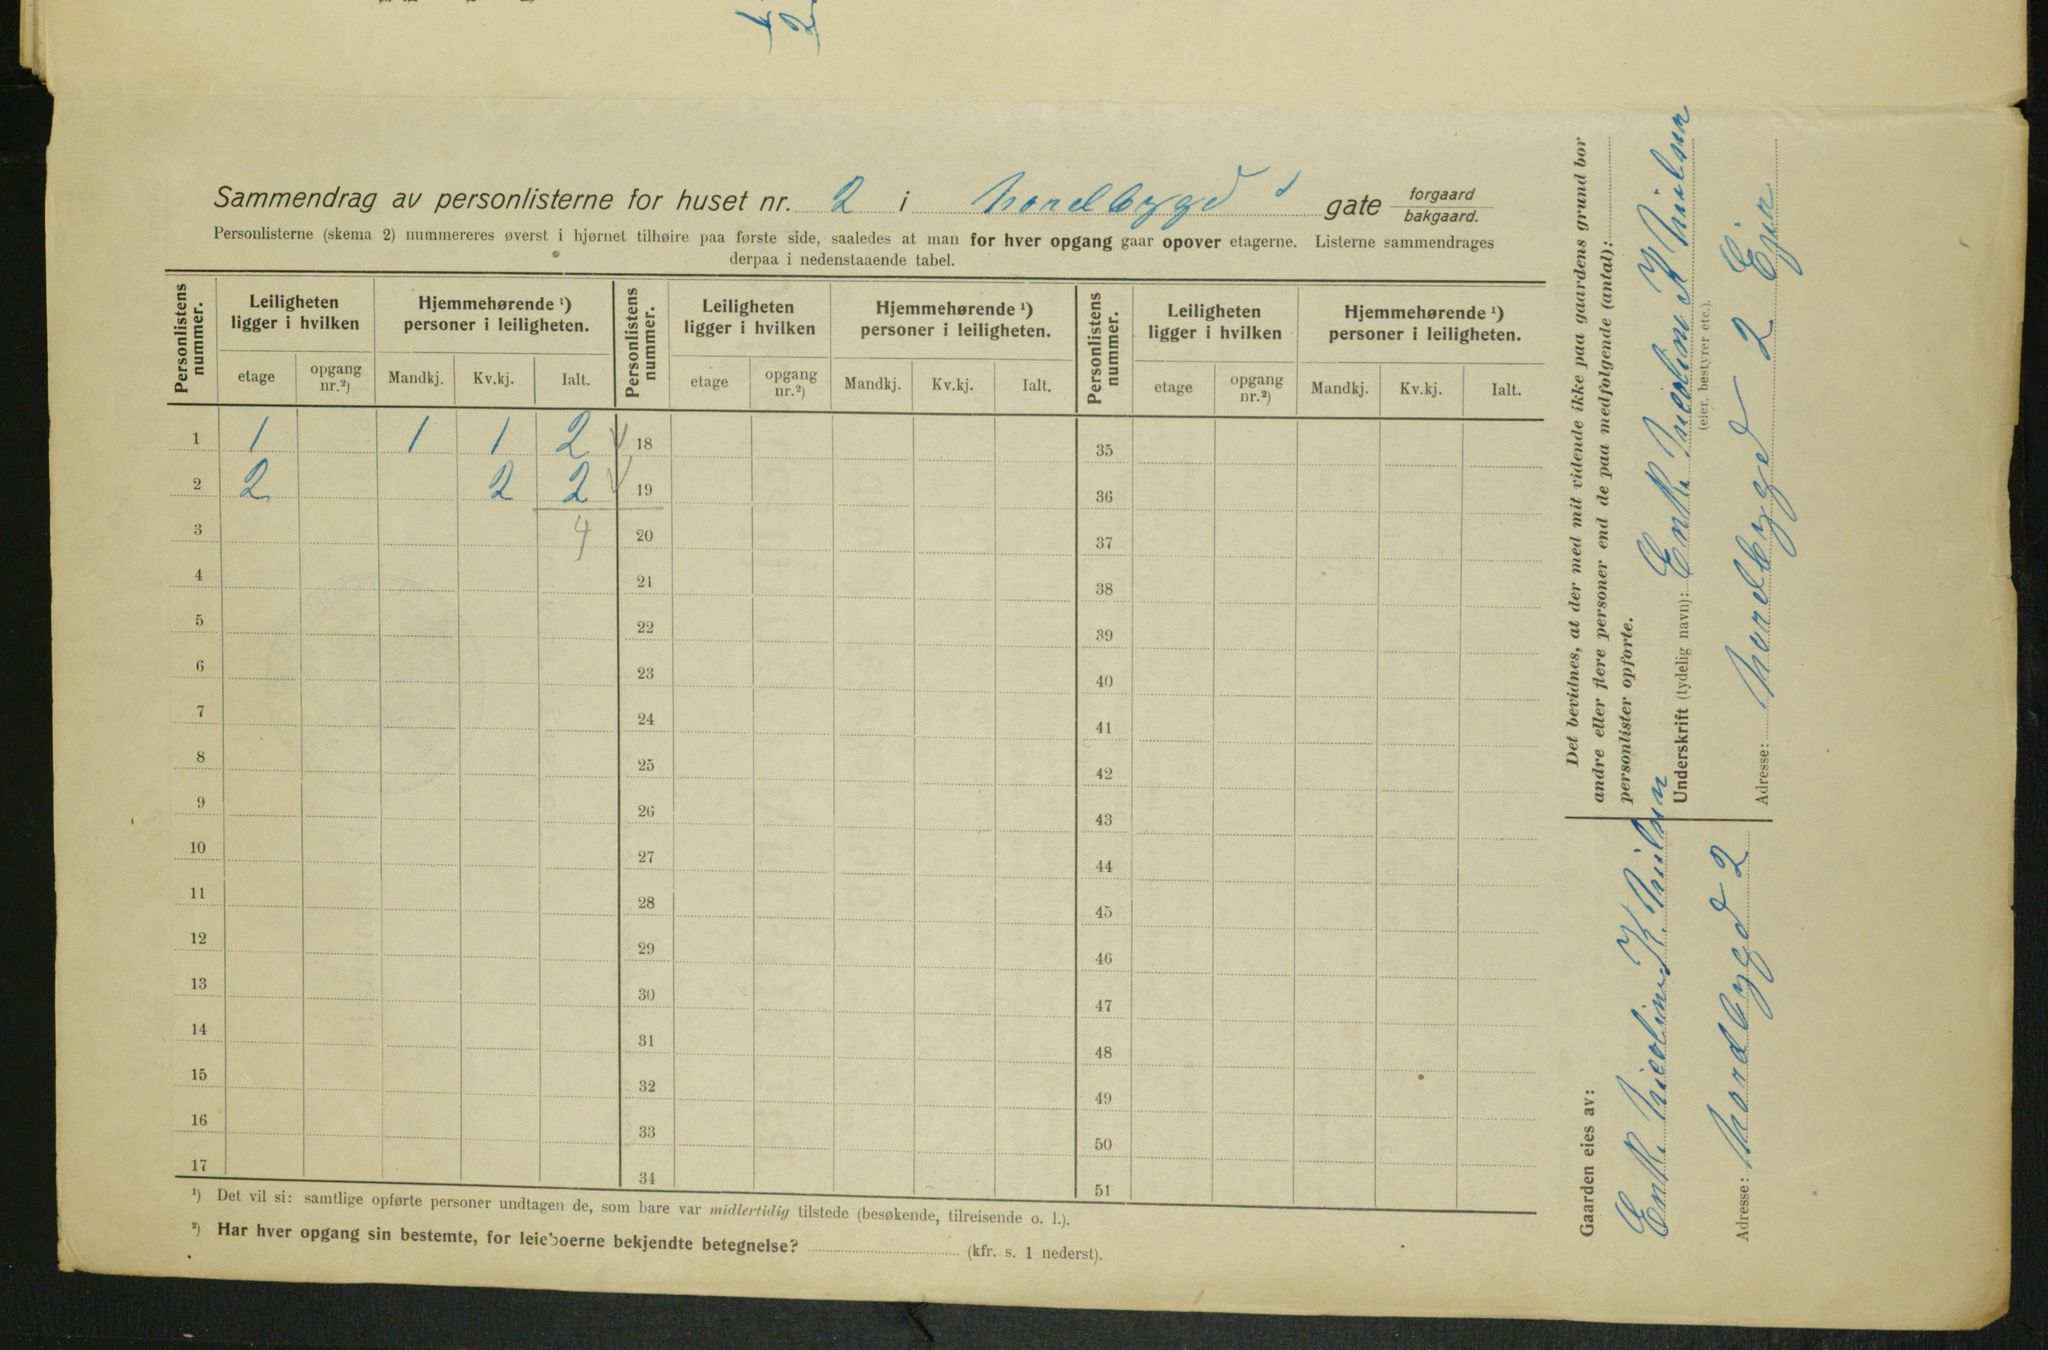 Sammendrag av personlisterne for huset nr. 2 i Nordbygd s gate forgaard bakgaard.
Personlisterne (skema 2) nummereres øverst i hjørnet tilhøire paa første side, saaledes at man for hver opgang gaar opover etagerne. Listerne sammendrages
derpaa i nedenstaaende tabel.
Personlistens nummer. Leiligheten ligger i hvilken Hjemmehørende ¹) personer i leiligheten. Personlistens nummer. Leiligheten ligger i hvilken Hjemmehørende ¹) personer i leiligheten. Personlistens nummer. Leiligheten ligger i hvilken Hjemmehørende ¹) personer i leiligheten.
etage opgang nr.²) Mandkj. Kv.kj. Ialt. etage opgang nr.²) Mandkj. Kv.kj. Ialt. etage opgang nr.²) Mandkj. Kv.kj. Ialt.
1 1 1 1 2 18 35
2 2 2 2 19 36
3 4 20 37
4 21 38
5 22 39
6 23 40
7 24 41
8 25 42
9 26 43
10 27 44
11 28 45
12 29 46
13 30 47
14 31 48
15 32 49
16 33 50
17 34 51
¹) Det vil si: samtlige opførte personer undtagen de, som bare var midlertidig tilstede (besøkende, tilreisende o. l.).
²) Har hver opgang sin bestemte, for leieboerne bekjendte betegnelse? (kfr. s. 1 nederst).
Det bevidnes, at der med mit vidende ikke paa gaardens grund bor
andre eller flere personer end de paa medfølgende (antal):
personlister opførte.
Underskrift (tydelig navn): Enke Nicoline K Nilsen
(eier, bestyrer etc.).
Adresse: Nordbygd 2 Eier
Gaarden eies av:
Enke Nicoline K Nilsen
Adresse: Nordbygd 2